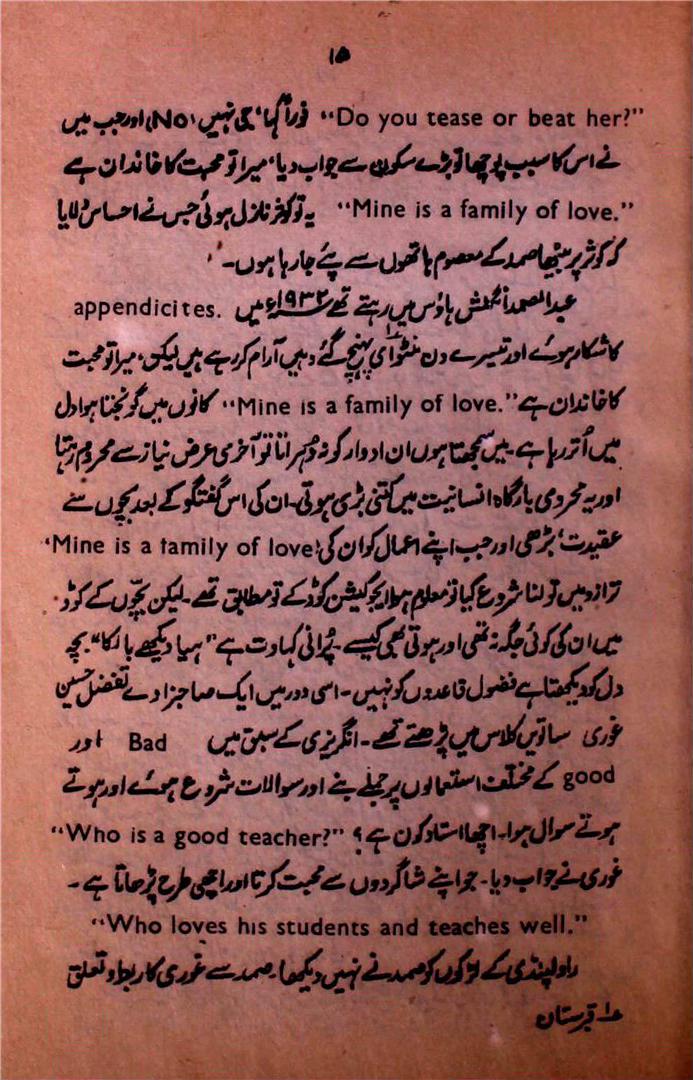 ۱۵
“Do you tease or beat her?” فوراً کہا، جی نہیں (No) اور جب میں
نے اس کا سبب پوچھا تو بڑے سکون سے جواب دیا، میرا تو محبت کا خاندان ہے
“Mine is a family of love.” یہ تو کوثر نازل ہوئی جس نے احساس دلایا
کہ کوثر پر بیٹھا صمد کے معصوم ہاتھوں سے پئے جا رہا ہوں۔
عبدالصمد انگلش ہاؤس میں رہتے تھے ۱۹۳۲ء میں appendicites.
کا شکار ہوئے اور تیسرے دن منٹوای پہنچ گئے وہیں آرام کر رہے ہیں لیکن، میرا تو محبت
کا خاندان ہے “Mine is a family of love.” کانوں میں گونجتا ہوا دل
میں اُتر رہا ہے۔ میں سمجھتا ہوں ان ادوار کو نہ دُہراتا تو آخری عرض نیاز سے محروم رہتا
اور یہ محرومی بارگاہ انسانیت میں کتنی بڑی ہوتی۔ ان کی اس گفتگو کے بعد بچوں سے
عقیدت، بڑھی اور جب اپنے اعمال کو ان کی ‘Mine is a family of love’
ترازو میں تولنا شروع کیا تو معلوم ہوا ایجوکیشن کوڈ کے تو مطابق تھے۔ لیکن بچّوں کے کوڈ
میں ان کی کوئی جگہ نہ تھی اور ہوتی بھی کیسے۔ پُرانی کہاوت ہے “ہیا دیکھے بالکا” بچہ
دل کو دیکھتا ہے فضول قاعدوں کو نہیں۔ اسی دور میں ایک صاحبزادے تفضل حسین
غوری ساتویں کلاس میں پڑھتے تھے۔ انگریزی کے سبق میں Bad اور
good کے مختلف استعمالوں پر جملے بنے اور سوالات شروع ہوئے اور ہوتے
ہوتے سوال ہوا۔ اچھا استاد کون ہے؟ “Who is a good teacher?”
غوری نے جواب دیا۔ جو اپنے شاگردوں سے محبت کرتا اور اچھی طرح پڑھاتا ہے۔
“Who loves his students and teaches well.”
راولپنڈی کے لڑکوں کو صمد نے نہیں دیکھا۔ صمد سے غوری کا ربط و تعلق
۱ قبرستان